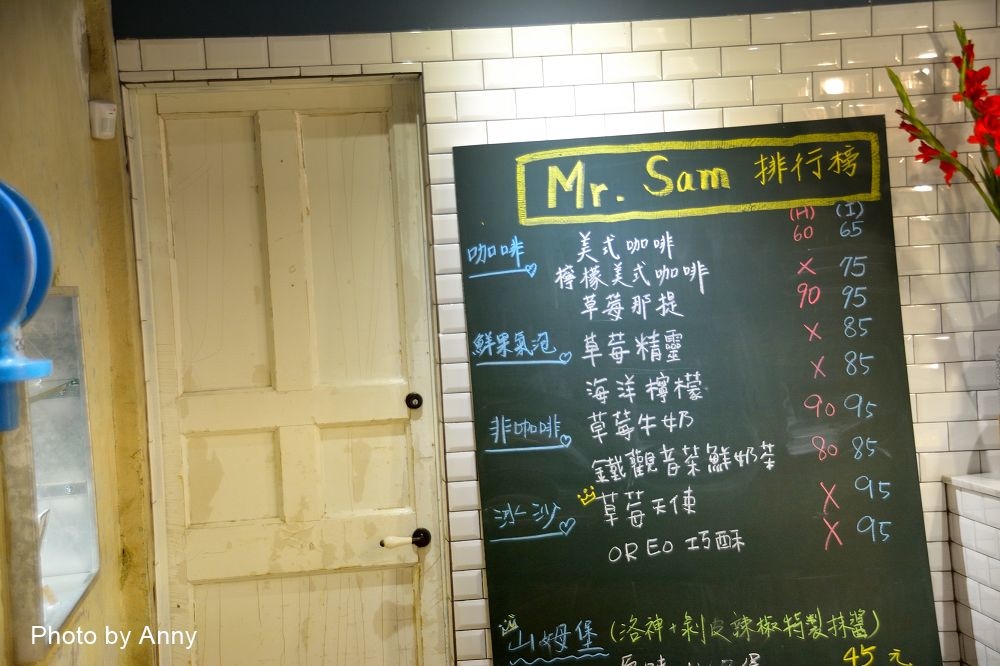 Mr. Sam 排行榜
(H) (I)
咖啡 美式咖啡 60 65
檸檬美式咖啡 x 75
草莓那提 90 95
鮮果氣泡 草莓精靈 x 85
海洋檸檬 x 85
非咖啡 草莓牛奶 90 95
鐵觀音茶鮮奶茶 80 85
冰沙 草莓天使 x 95
OREO 巧酥 x 95
山姆堡 (洛神+剝皮辣椒特製抹醬)
45元
Photo by Anny